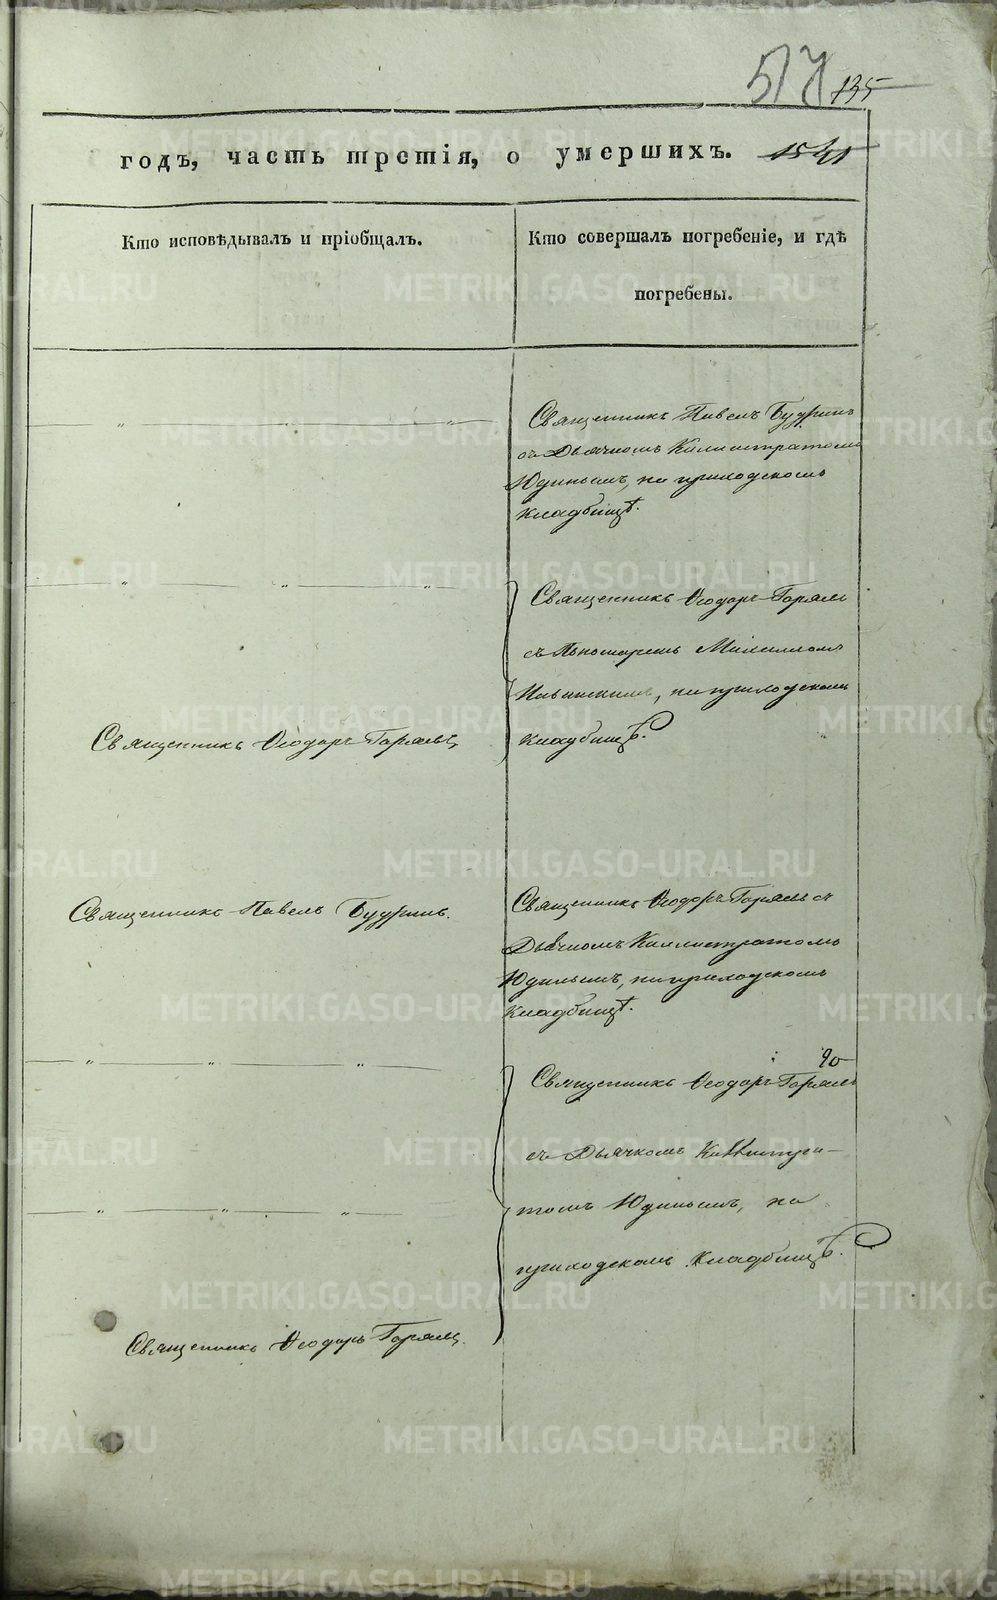 517 135
годъ, часть третія, о умершихъ. 1541
Кто исповѣдывалъ и пріобщалъ.
Кто совершалъ погребеніе, и гдѣ
погребены.
Священникъ Павелъ Будринъ
съ Дьячкомъ Каллистратомъ
Юдинымъ, на приходскомъ
кладбищѣ.
Священникъ Ѳеодоръ
съ Пономаремъ
на приходскомъ
кладбищѣ.
Священникъ Ѳеодоръ
Священникъ Павелъ Будринъ.
Священникъ Ѳеодоръ съ
Дьячкомъ Каллистратомъ
Юдинымъ, на приходскомъ
кладбищѣ.
Священникъ Ѳеодоръ
съ Дьячкомъ Каллистра-
томъ Юдинымъ, на
приходскомъ кладбищѣ.
Священникъ Ѳеодоръ
METRIKI.GASO-URAL.RU